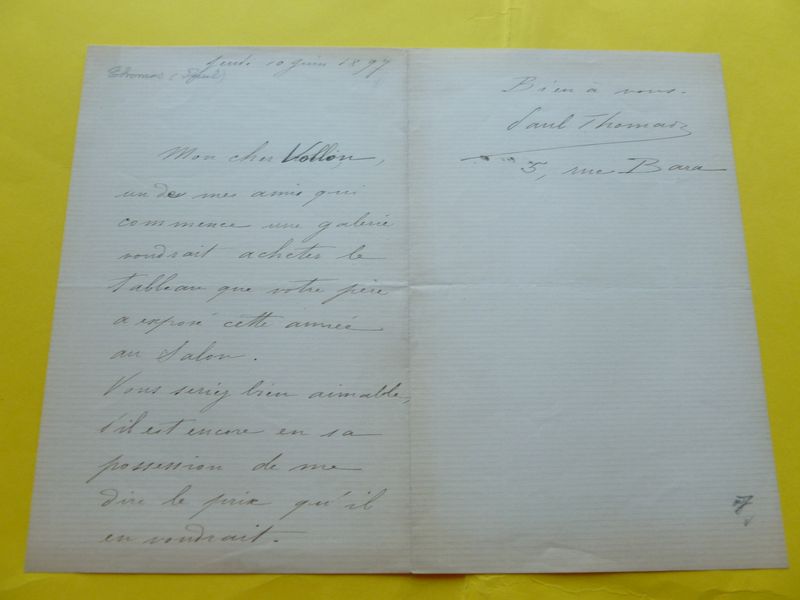 Jeudi 10 juin 1897
Thomas (Paul)
Mon cher Vollon,
un de mes amis qui
commence une galerie
voudrait acheter le
tableau que votre père
a exposé cette année
au Salon.
Vous seriez bien aimable,
s'il est encore en sa
possession de me
dire le prix qu'il
en voudrait.
Bien à vous.
Paul Thomas
5, rue Bara